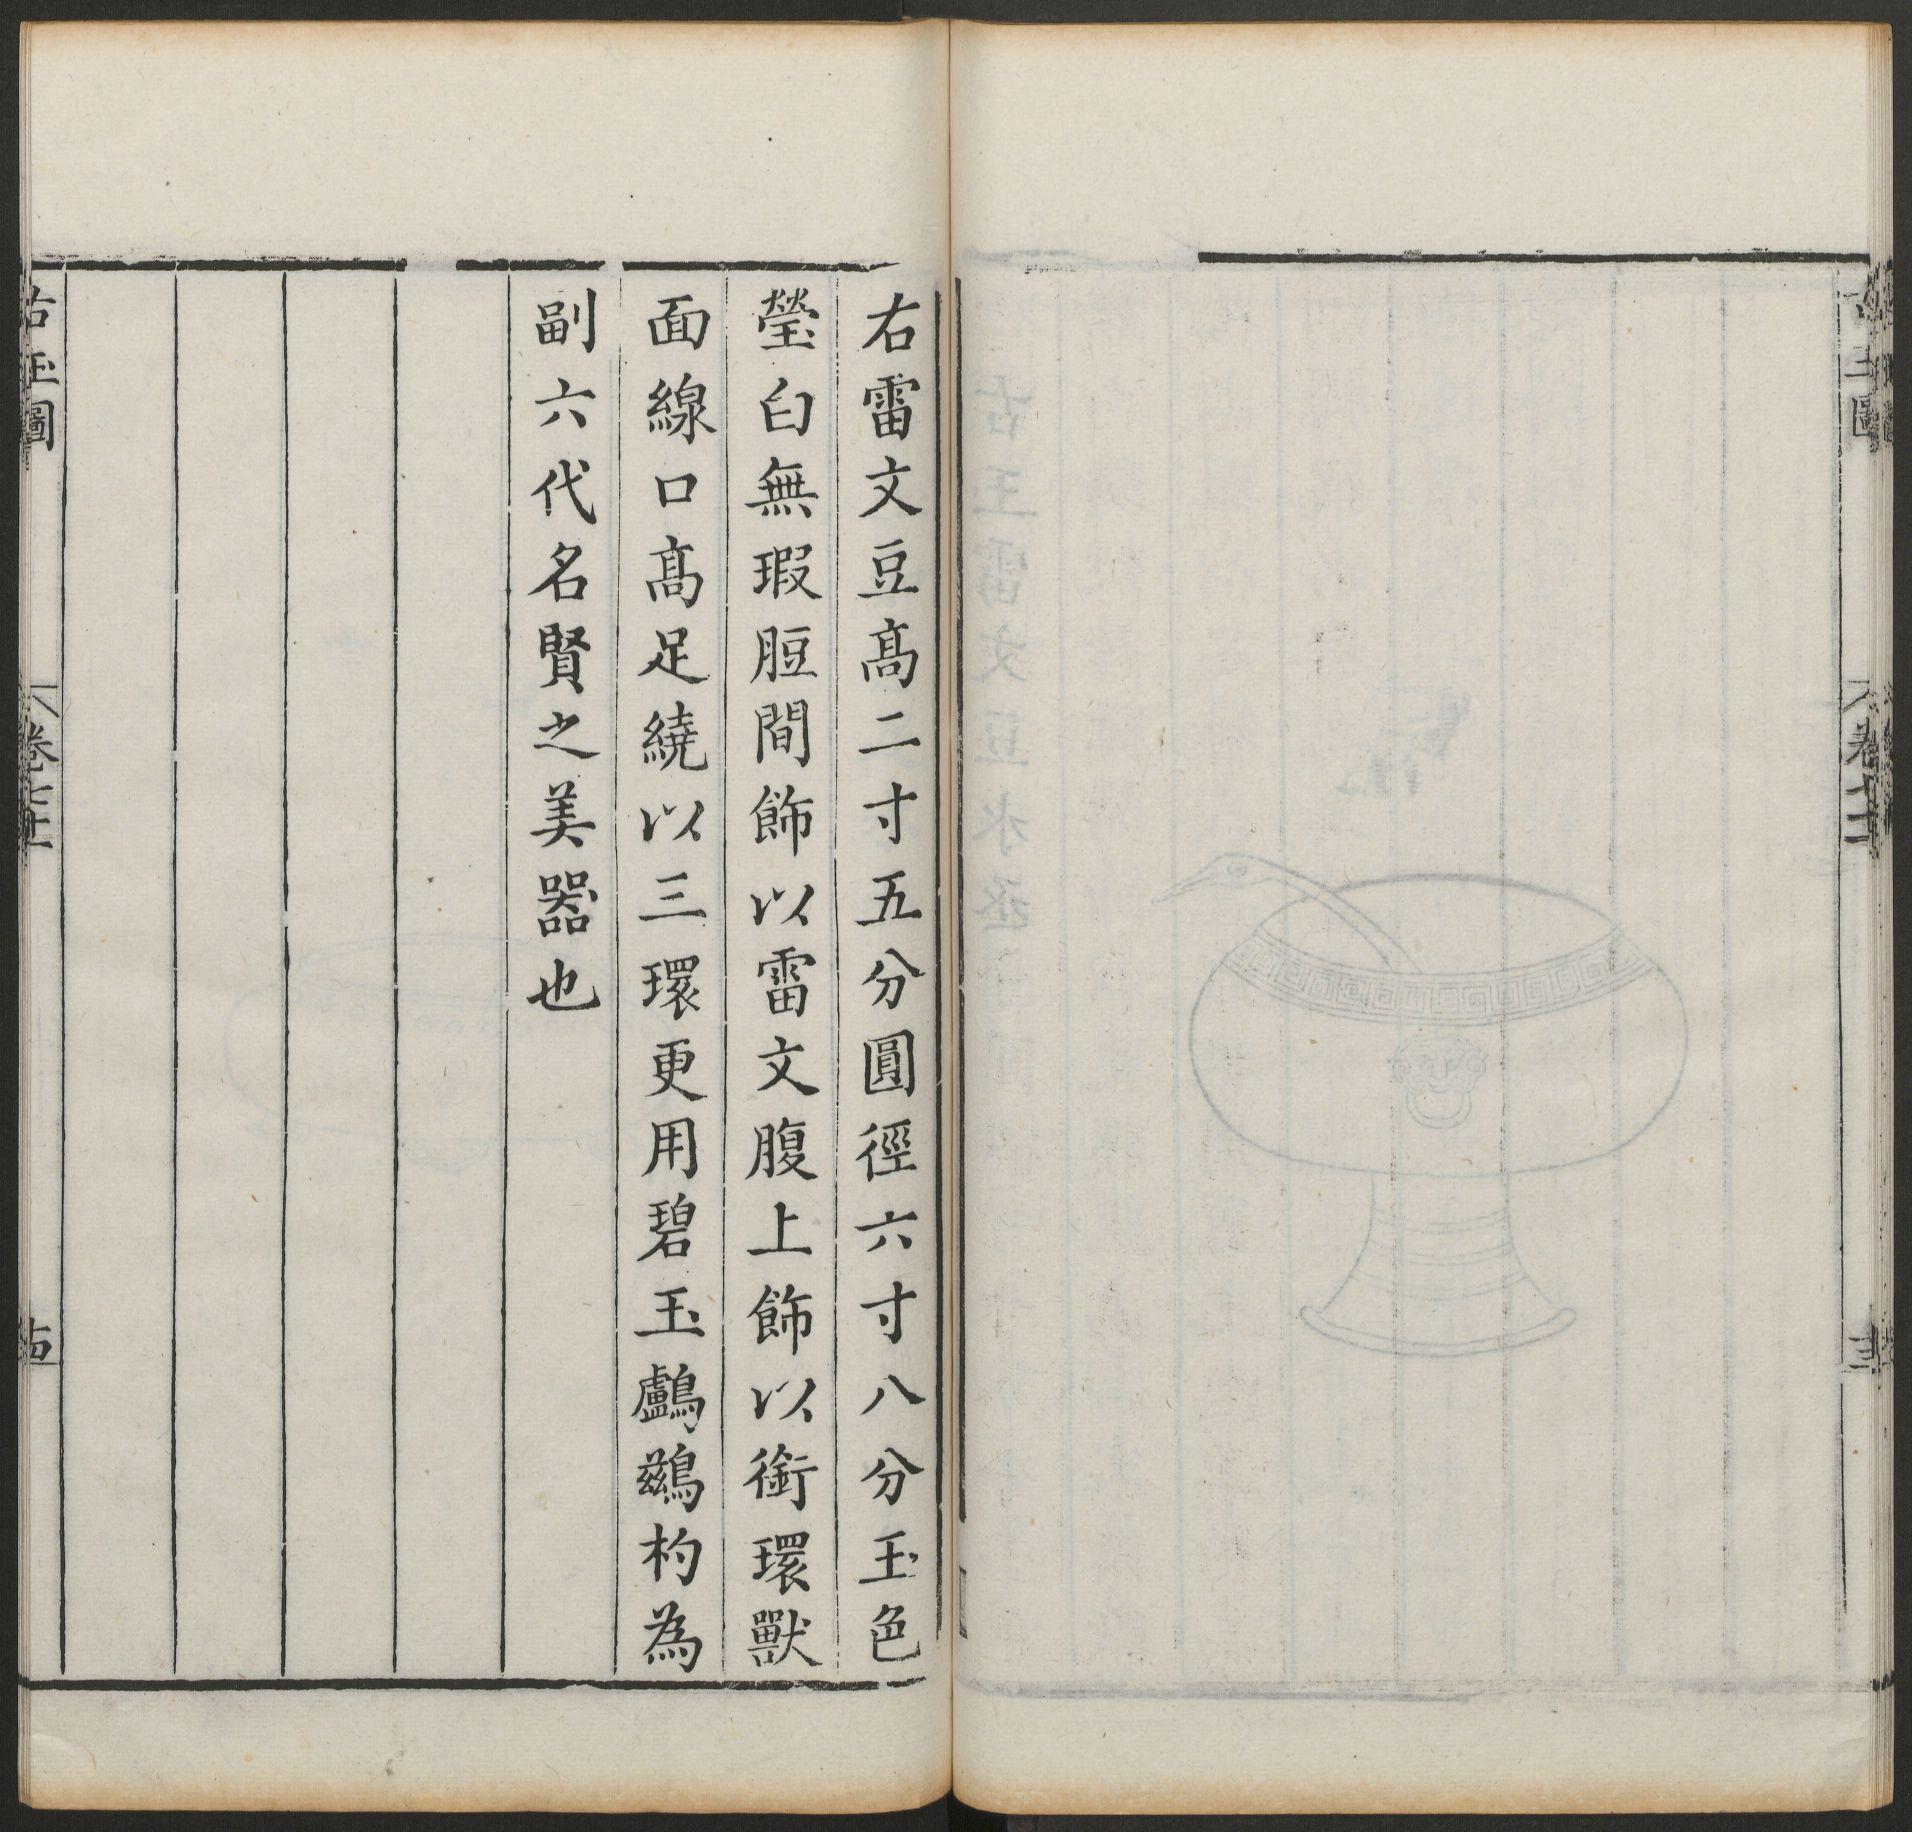 右雷文豆高二寸五分圓徑六寸八分玉色
瑩白無瑕脰間飾以雷文腹上飾以銜環獸
面線口高足繞以三環更用碧玉鸕鷀杓為
副六代名賢之美器也
古玉圖